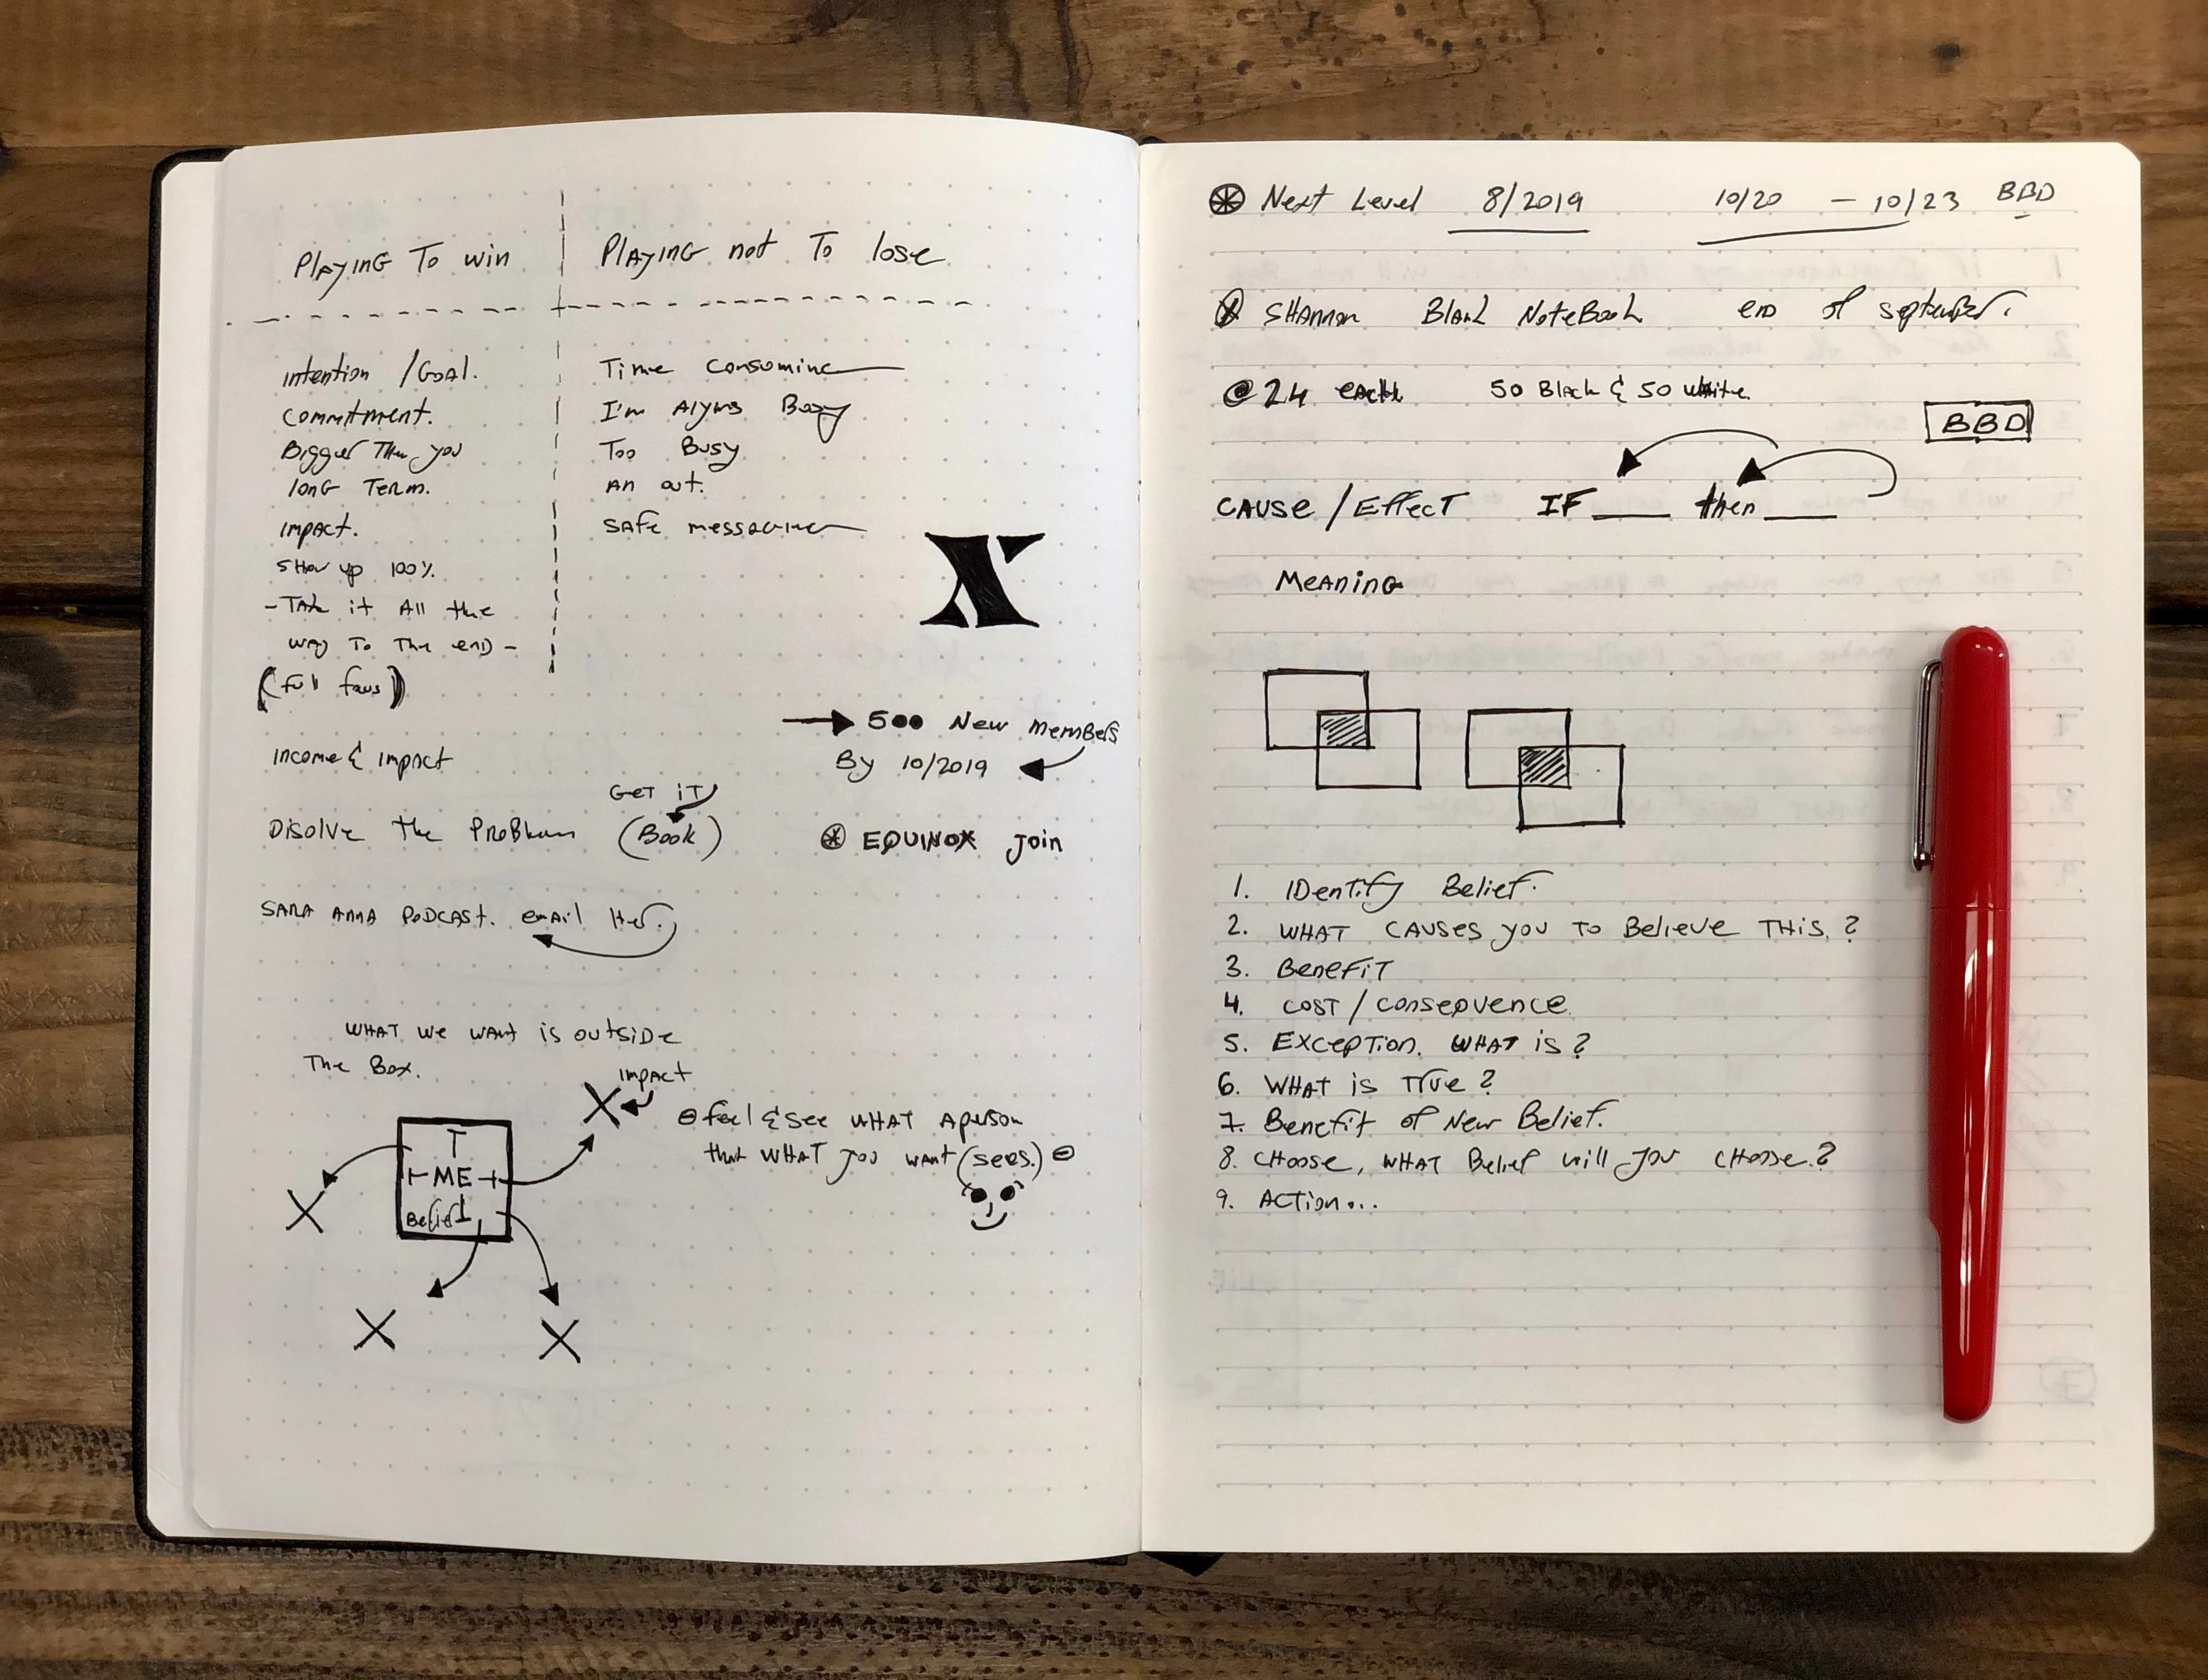 Playing To win
Playing not To lose
intention / Goal.
commitment.
Bigger Then you
long Term.
impact.
show up 100%
- Take it All the
way To The end -
(full fous)
Time consoming
I'm Alyws Busy
Too Busy
An out.
safe messaging
X
→ 500 New members
By 10/2019
income & impact
Get it
Disolve the Problem (Book)
EQUINOX Join
SARA ANNA PODCAST. email Her.
WHAT we want is outside
The Box.
impact
X
I
ME
Belief
X
X
X
feel & see WHAT A person
that WHAT you want (sees.)
Next Level 8/2019 10/20 - 10/23 BBD
SHANNON Blank NoteBook end of september.
@ 24 each 50 Black & 50 white.
BBD
CAUSE / Effect IF ___ then ___
Meaning
1. IDentify Belief.
2. WHAT CAUSES you TO Believe THis. ?
3. BenefiT
4. COST / consequence
5. EXCEPTion. WHAT is ?
6. WHAT is True ?
7. Benefit of New Belief.
8. CHoose, WHAT Belief will you CHoose. ?
9. ACTion...